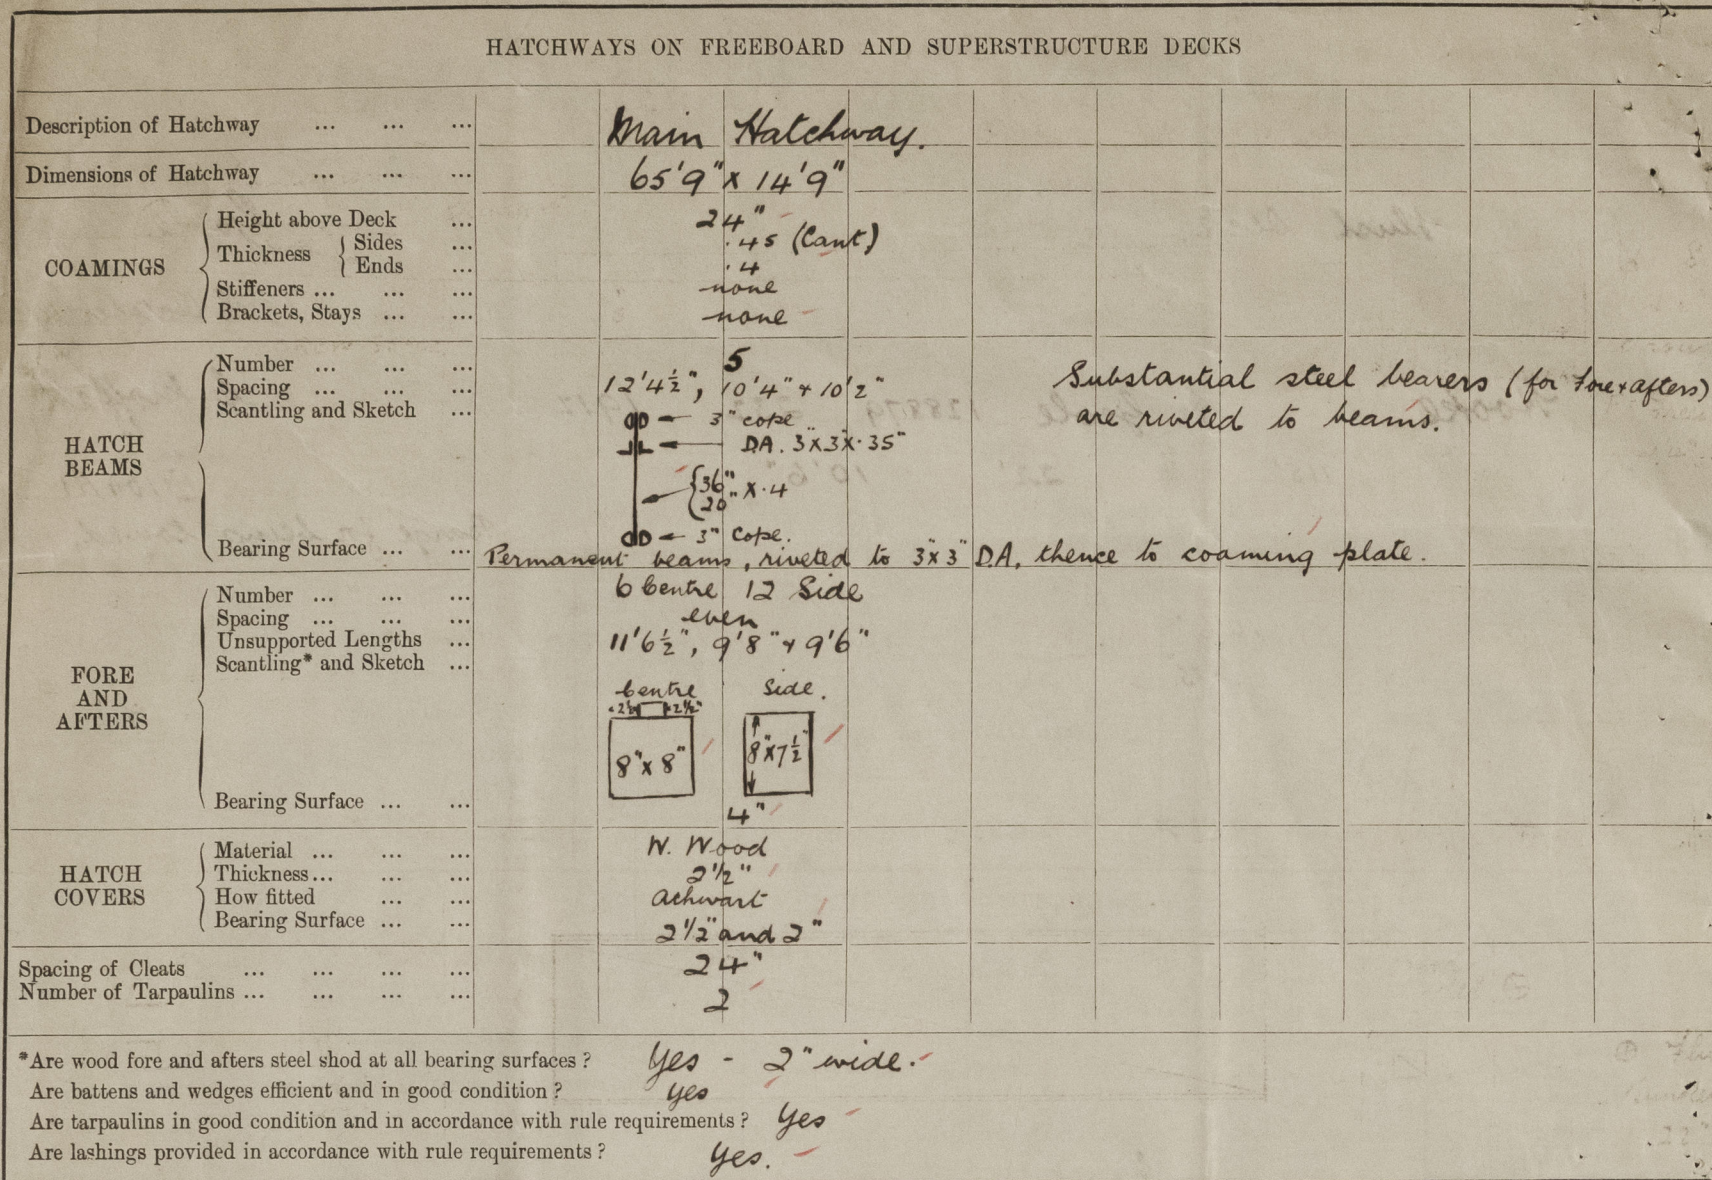 HATCHWAYS ON FREEBOARD AND SUPERSTRUCTURE DECKS
Description of Hatchway ... ... ... Main Hatchway.
Dimensions of Hatchway ... ... ... 65'9" x 14'9"
COAMINGS
Height above Deck ... 24"
Thickness { Sides ... .45 (Cant)
Ends ... .4
Stiffeners ... ... ... none
Brackets, Stays ... ... none
HATCH BEAMS
Number ... ... ... 5
Spacing ... ... ... 12'4½", 10'4" + 10'2"
Scantling and Sketch ...
3" cope
D.A. 3"x3"x.35"
{36" 20" x .4
3" Cope.
Substantial steel bearers (for fore + afters)
are riveted to beams.
Bearing Surface ... ... Permanent beams, riveted to 3"x3" D.A, thence to coaming plate.
FORE AND AFTERS
Number ... ... ... 6 Centre 12 Side
Spacing ... ... ... even
Unsupported Lengths ... 11'6½", 9'8" + 9'6"
Scantling* and Sketch ...
Centre Side.
2½" 2½"
8" x 8" 8"x7½"
Bearing Surface ... ... 4"
HATCH COVERS
Material ... ... ... W. Wood
Thickness... ... ... 2½"
How fitted ... ... Athwart
Bearing Surface ... ... 2½" and 2"
Spacing of Cleats ... ... ... ... 24"
Number of Tarpaulins ... ... ... ... 2
*Are wood fore and afters steel shod at all bearing surfaces? Yes - 2" wide.
Are battens and wedges efficient and in good condition? Yes
Are tarpaulins in good condition and in accordance with rule requirements? Yes
Are lashings provided in accordance with rule requirements? Yes.